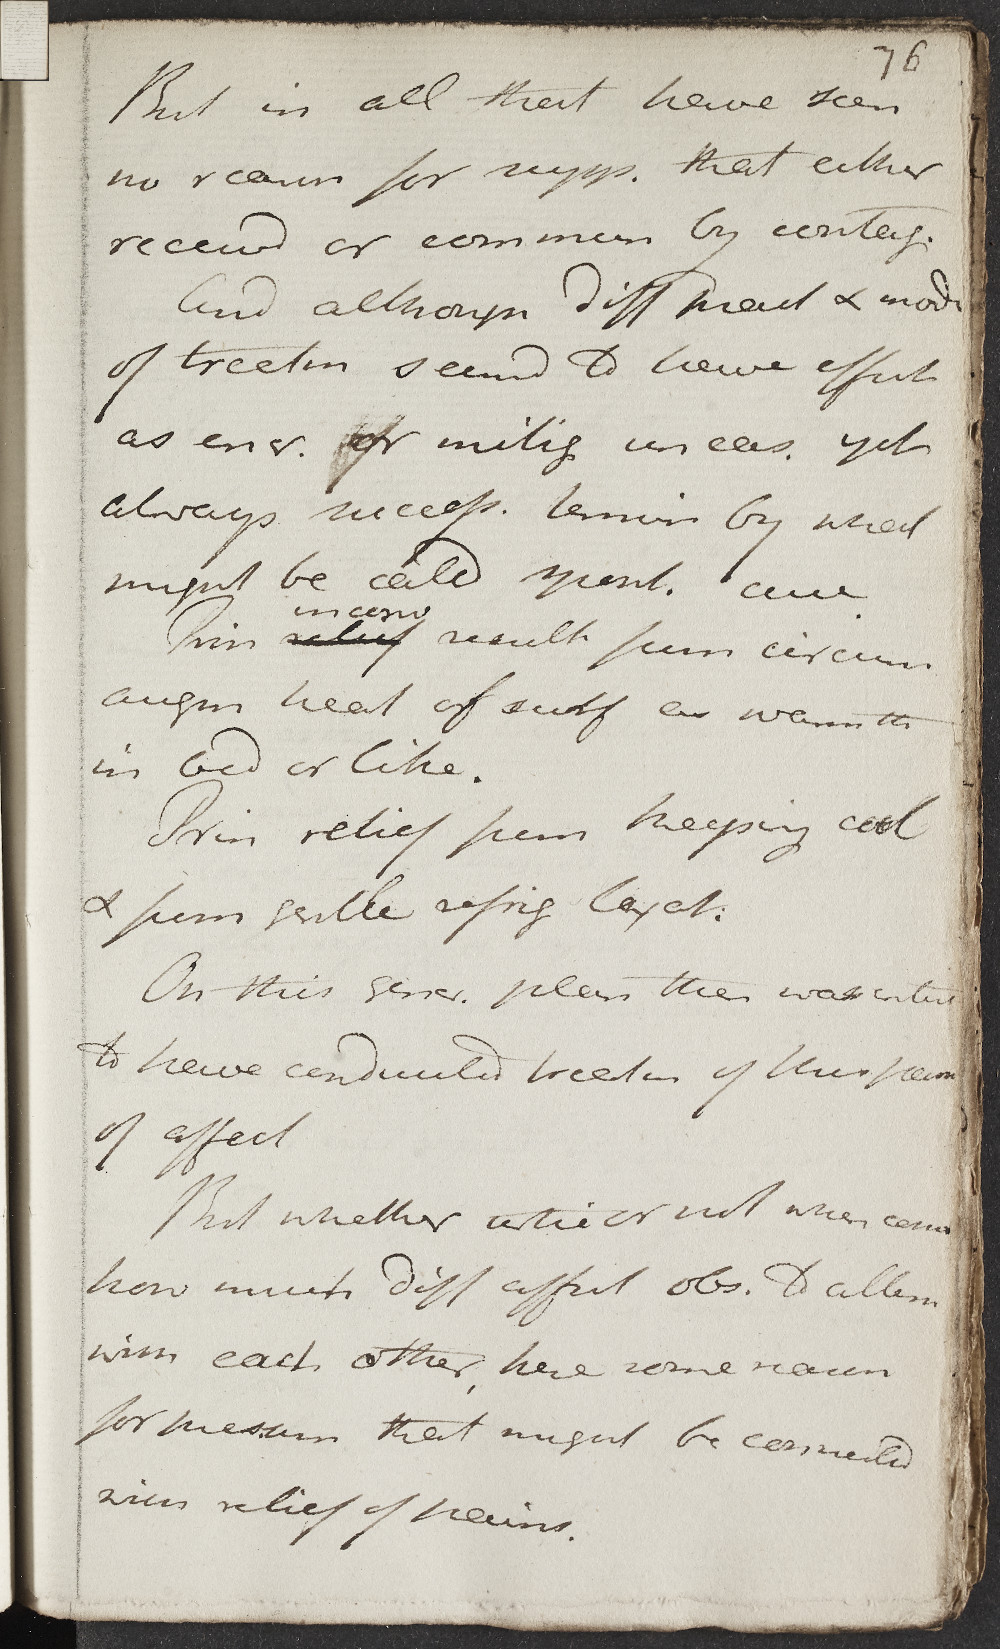 76
But in all that have seen
no reason for supps. that either
receivd or commun by contag.
And although Diff medt & mode
of treatm seemd to have effect
as ener. or mitig in cas. yet
always success. termin by what
might be calld spont. cure
Prin inconv relief result from circum
augm heat of surf as warmth
in bed or like.
Prin relief from keeping cool
& from gentle refrig laxat:
On this gener. plan then was
to have conducted treatm of this
of affect
But whether or not when
how much diff affect obs. to altern
with each other, have some reason
for presum that might be connectd
with relief of pains.